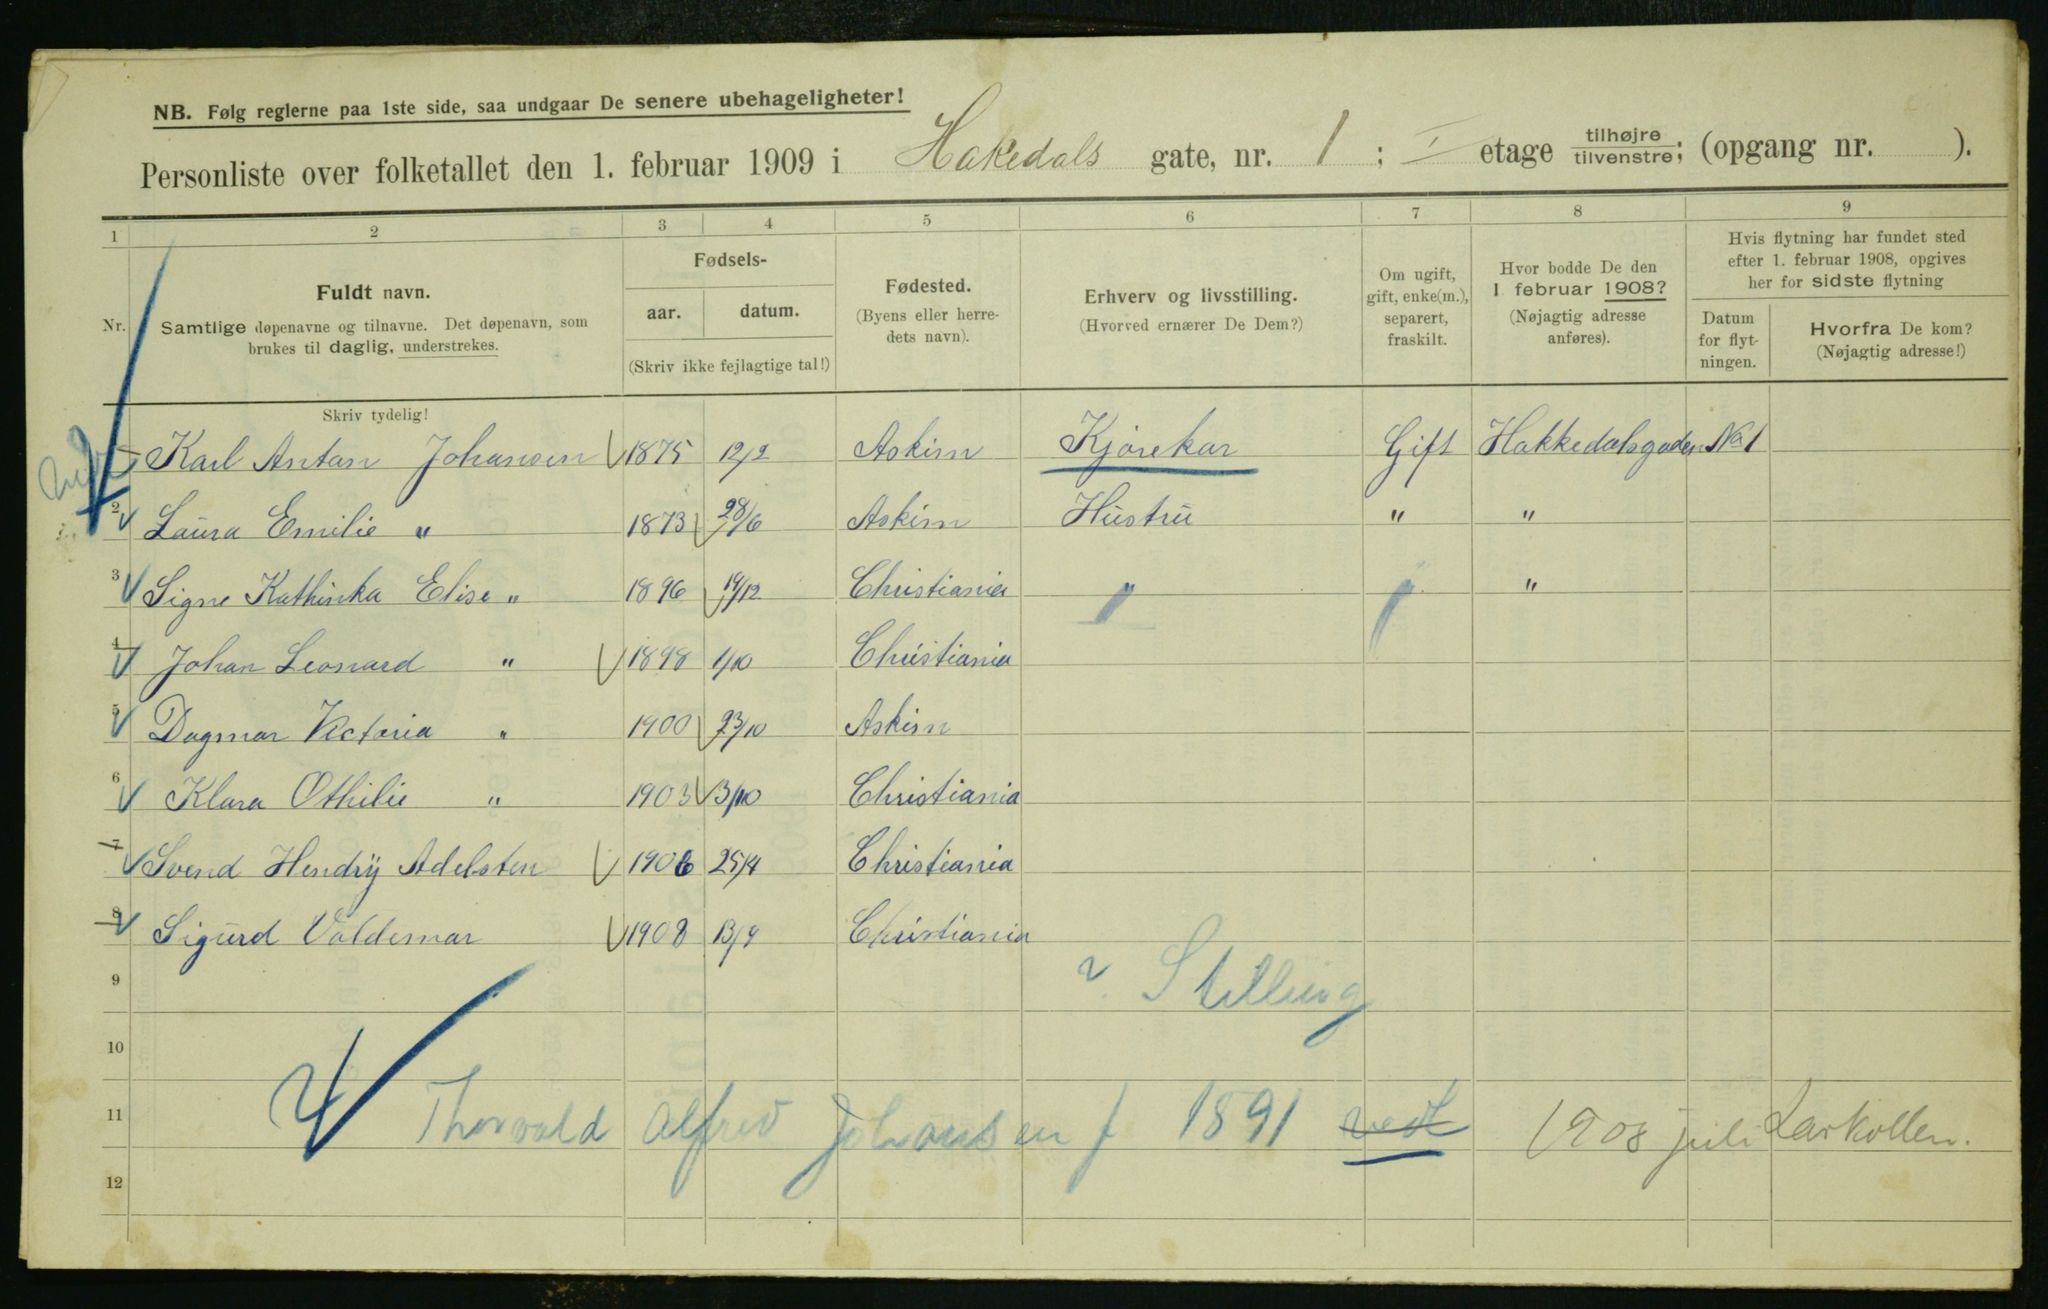 NB. Følg reglerne paa 1ste side, saa undgaar De senere ubehageligheter!
Personliste over folketallet den 1. februar 1909 i Hakedals gate, nr. 1 ; I etage tilhøjre/tilvenstre; (opgang nr. ).
1 2 3 4 5 6 7 8 9
Nr.
Fuldt navn.
Samtlige døpenavne og tilnavne. Det døpenavn, som
brukes til daglig, understrekes.
Fødsels-
aar. datum.
(Skriv ikke fejlagtige tal!)
Fødested.
(Byens eller herre-
dets navn).
Erhverv og livsstilling.
(Hvorved ernærer De Dem?)
Om ugift,
gift, enke(m.),
separert,
fraskilt.
Hvor bodde De den
1 februar 1908?
(Nøjagtig adresse
anføres).
Hvis flytning har fundet sted
efter 1. februar 1908, opgives
her for sidste flytning
Datum
for flyt-
ningen.
Hvorfra De kom?
(Nøjagtig adresse!)
Skriv tydelig!
Karl Antan Johansen 1875 12/2 Askim Kjørekar Gift Hakkedalsgaden No 1
2 Laura Emilie " 1873 28/6 Askim Hustru " "
3 Signe Kathinka Elise " 1896 19/12 Christiania " "
4 Johan Leonard " 1898 1/10 Christiania
5 Dagmar Victoria " 1900 23/10 Askim
6 Klara Othilie " 1903 3/10 Christiania
7 Svend Hendrÿ Adelsten 1906 25/4 Christiania
8 Sigurd Valdemar 1908 13/9 Christiania
9 Stilling
10
11 Thorvald Alfred Johansen f 1891 1908 juli Larkollen.
12